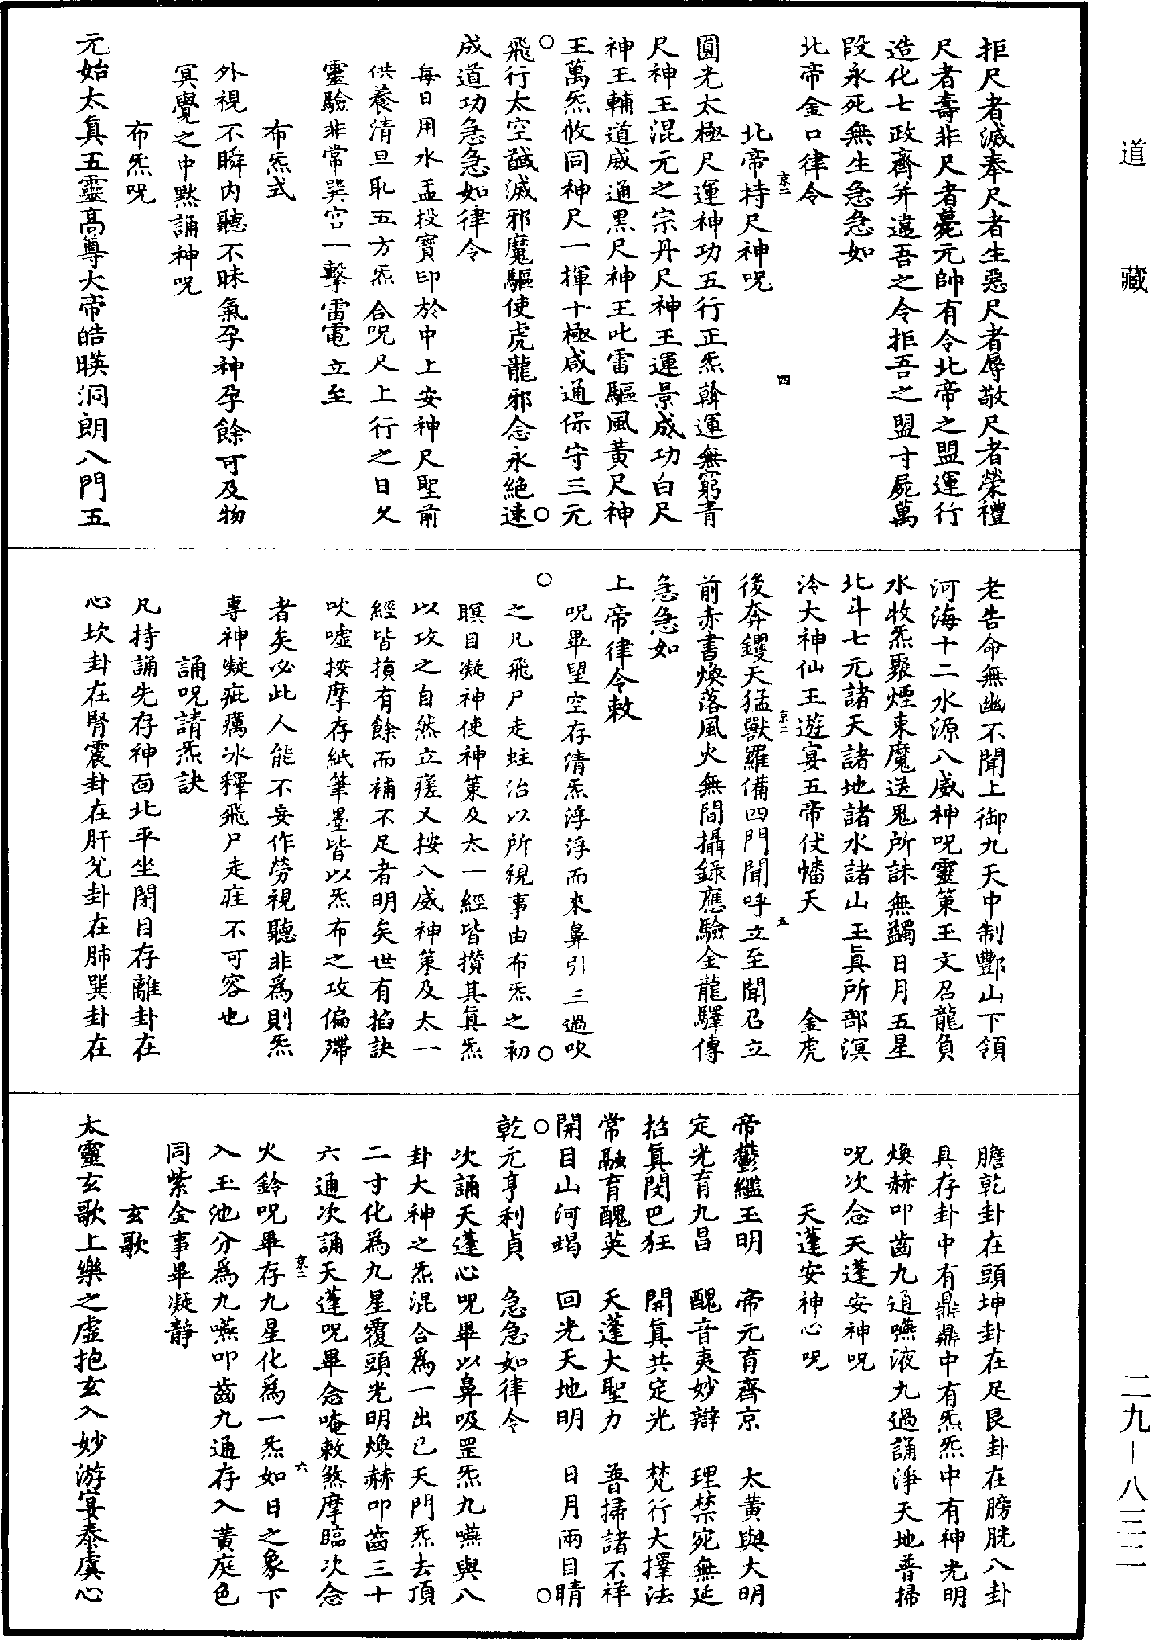 道藏
拒尺者滅奉尺者生惡尺者辱敬尺者榮禮
尺者壽非尺者薨元帥有令北帝之盟運行
造化七政齊并違吾之令拒吾之盟寸屍萬
段永死無生急急如
北帝金口律令
北帝持尺神呪
京二 四
圓光太極尺運神功五行正炁斡運無窮青
尺神王混元之宗丹尺神王運景成功白尺
神王輔道威通黑尺神王叱雷驅風黃尺神
王萬炁攸同神尺一揮十極咸通保守三元
飛行太空誠滅邪魔驅使虎龍邪念永絕速
成道功急急如律令
每日用水盂投寶印於中上安神尺聖前
供養清旦取五方炁合呪尺上行之日久
靈驗非常巽宮一擊雷電立至
布炁式
外視不瞬內聽不昧氣孕神孕餘可及物
冥覺之中默誦神呪
布炁呪
元始太真五靈高尊大帝皓暎洞朗八門五
老告命無幽不聞上御九天中制酆山下領
河海十二水源八威神呪靈策玉文召龍負
水收炁聚煙束魔送鬼所誅無蠲日月五星
北斗七元諸天諸地諸水諸山玉真所部溟
泠大神仙王遊宴五帝仗幡天 金虎
京二 五
後奔鑊天猛獸羅備四門聞呼立至聞召立
前赤書煥落風火無間攝錄應驗金龍驛傳
急急如
上帝律令敕
呪畢望空存清炁浮浮而來鼻引三過吹
之凡飛尸走蛀治以所視事由布炁之初
瞑目凝神使神策及太一經皆攢其真炁
以攻之自然立瘥又按八威神策及太一
經皆損有餘而補不足者明矣世有掐訣
吹噓按摩存紙筆墨皆以炁布之攻偏滯
者矣必此人能不妄作勞視聽非為則炁
專神凝疵癘冰釋飛尸走疰不可容也
誦呪請炁訣
凡持誦先存神面北平坐閉目存離卦在
心坎卦在腎震卦在肝兌卦在肺巽卦在
膽乾卦在頭坤卦在足艮卦在膀胱八卦
具存卦中有鼎鼎中有炁炁中有神光明
煥赫叩齒九通嚥液九過誦淨天地普掃
呪次念天蓬安神呪
天蓬安神心呪
帝鬱繼玉明 帝元育齊京 太黃與大明
定光育九昌 醜音夷妙辯 理禁宛無延
招真閔巴狂 開真共定光 梵行大擇法
常融育醜英 天蓬大聖力 普掃諸不祥
開目山河竭 回光天地明 日月兩目睛
乾元亨利貞 急急如律令
次誦天蓬心呪畢以鼻吸罡炁九嚥與八
卦大神之炁混合為一出已天門炁去頂
二寸化為九星覆頭光明煥赫叩齒三十
六通次誦天蓬呪畢念唵敕煞摩臨次念
京二 六
火鈴呪畢存九星化為一炁如日之象下
入玉池分為九嚥叩齒九通存入黃庭色
同紫金事畢凝靜
玄歌
太靈玄歌上樂之虛抱玄入妙游宴泰虞心
二九–八三二